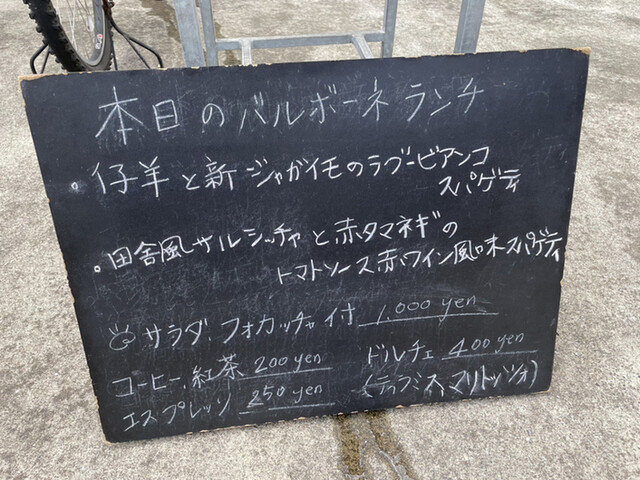 本日のバルボーネランチ
・仔羊と新ジャガイモのラグービアンコ
スパゲティ
・田舎風サルシッチャと赤タマネギの
トマトソース赤ワイン風味スパゲティ
サラダ、フォカッチャ付 1,000 yen
コーヒー、紅茶 200 yen ドルチェ 400 yen
エスプレッソ 250 yen (ティラミス、マリトッツォ)